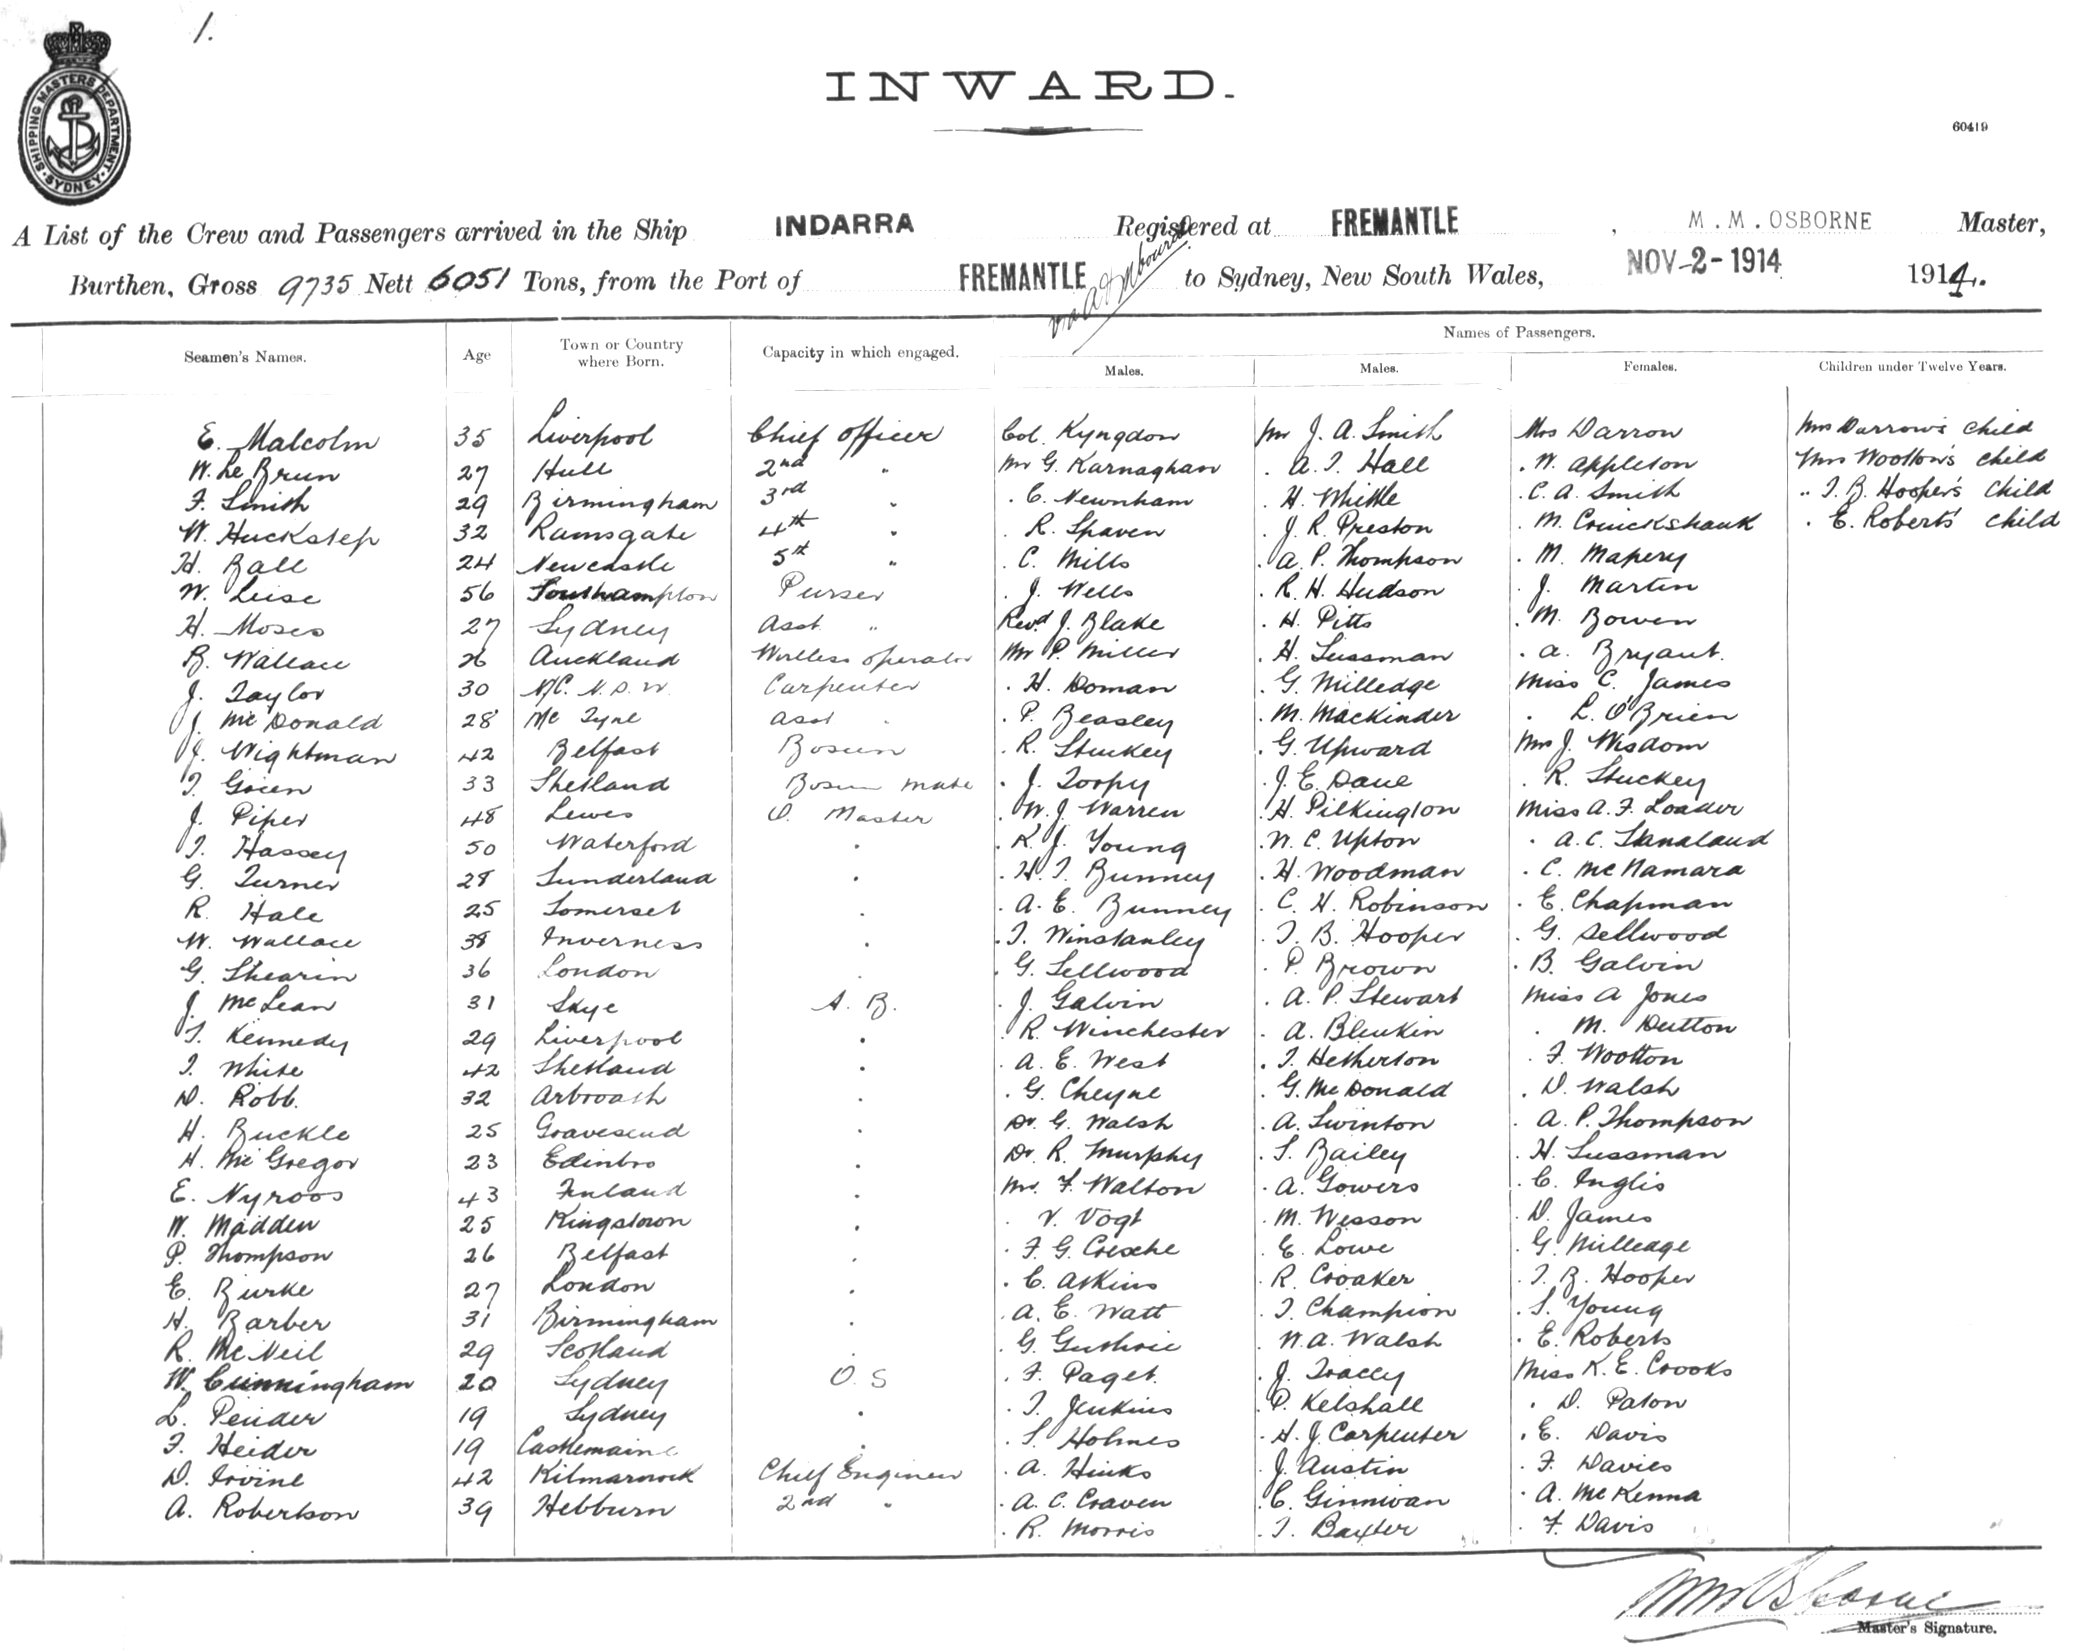 1.
SHIPPING MASTERS DEPARTMENT
SYDNEY
INWARD.
60419
A List of the Crew and Passengers arrived in the Ship INDARRA Registered at FREMANTLE , M. M. OSBORNE Master,
Burthen, Gross 9735 Nett 6051 Tons, from the Port of FREMANTLE to Sydney, New South Wales, NOV-2-1914 1914.
Names of Passengers.
Seamen's Names. Age Town or Country where Born. Capacity in which engaged. Males. Males. Females. Children under Twelve Years.
E. Malcolm 35 Liverpool Chief Officer Col. Kyngdon Mr J. A. Smith Mrs Darron Mrs Darrow's child
W. Le Brun 27 Hull 2nd " Mr G. Karnaghan . A. T. Hall . W. Appleton Mrs Wootton's child
F. Smith 29 Birmingham 3rd " . C. Newnham . H. Whittle . C. A. Smith " T. B. Hooper's child
W. Huckstep 32 Ramsgate 4th " . R. Spaven . J. R. Preston . M. Cruickshank . E. Roberts' child
H. Ball 24 Newcastle 5th " . C. Mills . A. P. Thompson . M. Mapery
W. Leise 56 Southampton Purser . J. Wells . R. H. Hudson . J. Martin
H. Moses 27 Sydney Asst " Revd J. Blake . H. Pitts . M. Bowen
B. Wallace 26 Auckland Wireless operator Mr P. Miller . H. Sussman . A. Bryant.
J. Taylor 30 N/C. N.S.W. Carpenter . H. Doman . G. Milledge Miss C. James
J. McDonald 28 Mc Tyne Asst " . P. Beasley . M. Mackinder . L. O'Brien
J. Wightman 42 Belfast Bosun . R. Stuckey . G. Upward Mrs J. Wisdom
T. Green 33 Shetland Bosun mate . J. Torpy . J. E. Dane . R. Stuckey
J. Piper 48 Lewes Q. Master . W. J. Warren . H. Pilkington Miss A. F. Loader
T. Hassey 50 Waterford . . K. J. Young . W. C. Upton . A. C. Stanaland
G. Turner 28 Sunderland . . H. T. Bunney . H. Woodman . C. McNamara
R. Hale 25 Somerset . . A. E. Bunney . C. H. Robinson . E. Chapman
W. Wallace 38 Inverness . . T. Winstanley . T. B. Hooper . G. Sellwood
G. Shearin 36 London . . G. Sellwood . P. Brown . B. Galvin
J. McLean 31 Skye A. B. . J. Galvin . A. P. Stewart Miss A Jones
T. Kennedy 29 Liverpool . . R. Winchester . A. Blenkin . M. Dutton
T. White 42 Shetland . . A. E. West . T. Hetherton . F. Wootton
D. Robb. 32 Arbroath . . G. Cheyne . G. McDonald . D. Walsh
H. Buckle 25 Gravesend . Dr. G. Walsh . A. Swinton . A. P. Thompson
H. McGregor 23 Edinbro . Dr. R. Murphy . S. Bailey . H. Sussman
E. Nyroos 43 Finland . Mr. F. Walton . A. Gowers . C. Inglis
W. Madden 25 Kingstown . . V. Vogt . M. Wesson . D. James
P. Thompson 26 Belfast . . F. G. Creche . E. Lowe . G. Milledge
E. Burke 27 London . . C. Atkins . R. Croaker . T. B. Hooper
H. Barber 31 Birmingham . . A. E. Watt . T. Champion . S. Young
R. McNeil 29 Scotland . . G. Guthrie . W. A. Walsh . E. Roberts
W. Cunningham 20 Sydney O. S . F. Paget. . J. Tracey Miss K. E. Crooks
L. Pender 19 Sydney . . T. Jenkins . P. Kelshall . D. Paton
F. Heider 19 Castlemaine . . S. Holmes . H. J. Carpenter . E. Davis
D. Irvine 42 Kilmarnock Chief Engineer . A. Hinks . J. Austin . F. Davies
A. Robertson 39 Hebburn 2nd " . A. C. Craven . C. Ginnivan . A. McKenna
. R. Morris . T. Baxter . F. Davis
MMOsborne
Master's Signature.